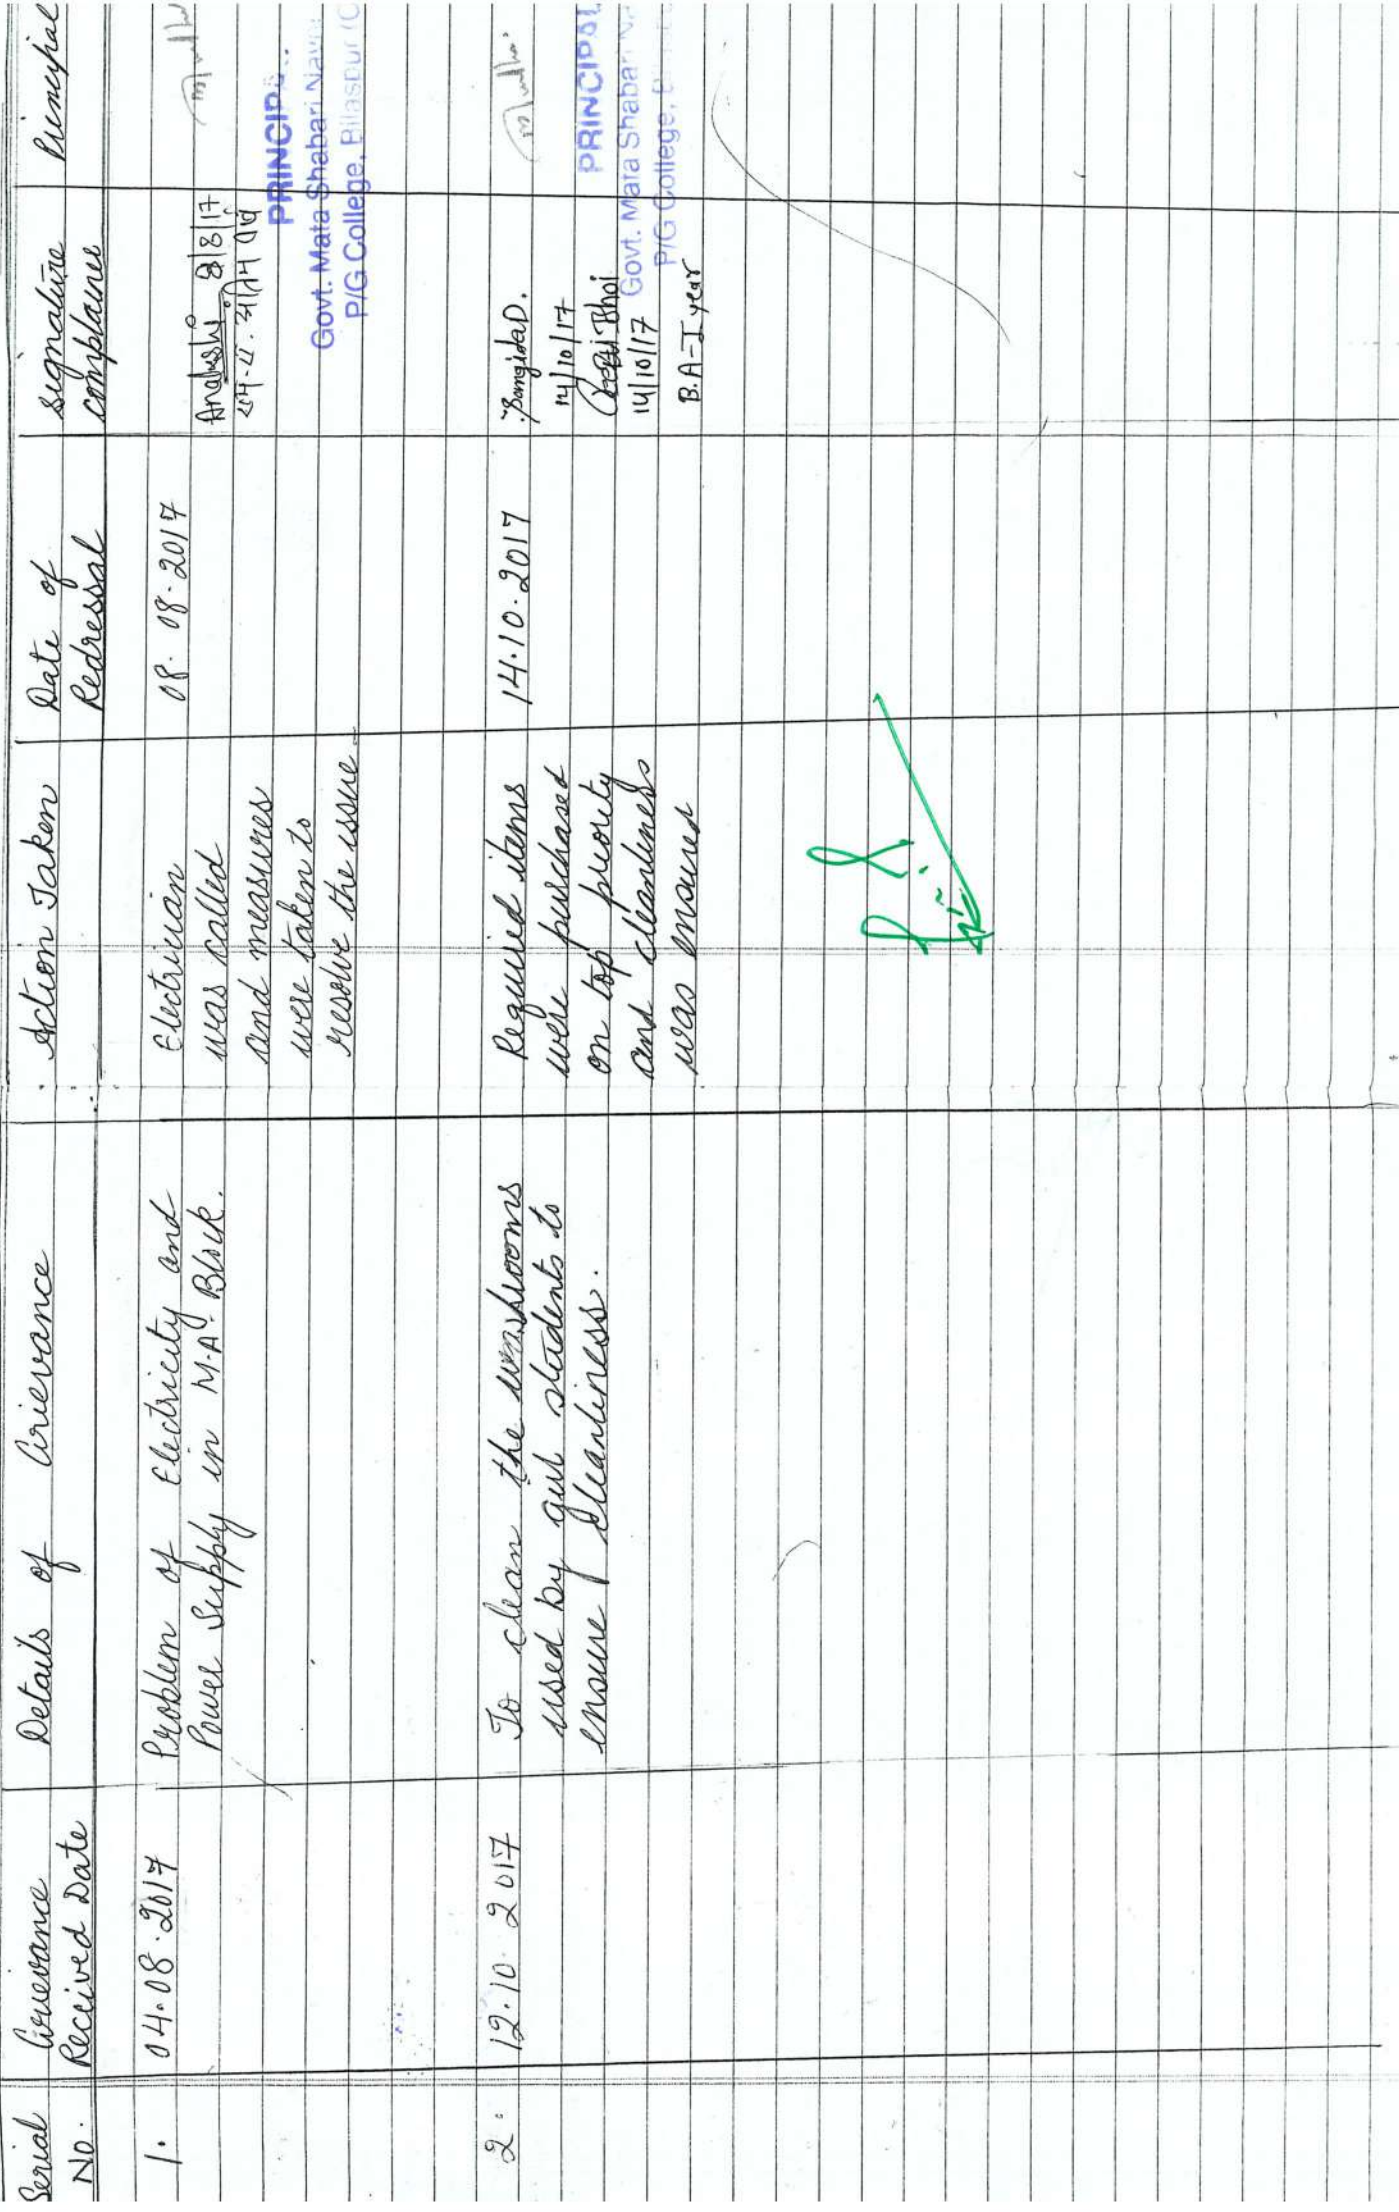 Serial No.
Grievance Recived Date
Details of Grievance
Action Taken
Date of Redressal
Signature complainee
Principal
1.
04.08.2017
Problem of Electricity and
Power Supply in M.A. Block.
Electrician
was called
and measures
were taken to
resolve the issue
08.08.2017
8/8/17
PRINCIPA
Govt. Mata Shabari Navee
P/G College, Bilaspur (C
2.
12.10.2017
To clean the washrooms
used by girl students to
ensure Cleanliness.
Required items
were purchased
on top priority
and cleanliness
was ensured
14.10.2017
Sangida D.
14/10/17
Bhoi
14/10/17
B.A-I year
PRINCIPAL
Govt. Mata Shabari Na
P/G College,